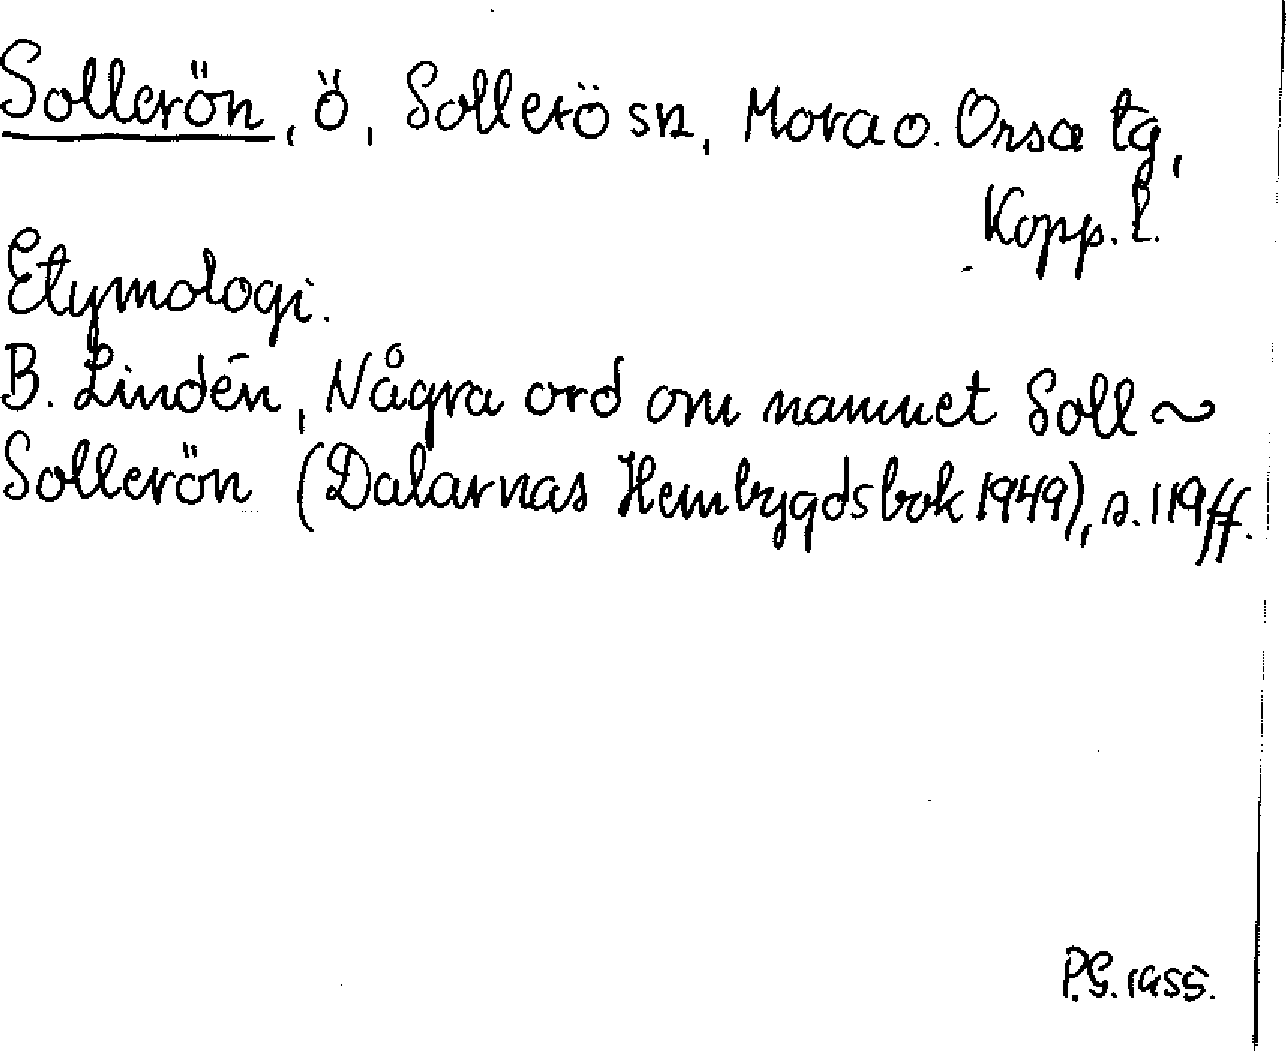 Sollerön, ö, Sollerö sn, Mora o. Orsa tg,
Kopp. l.
Etymologi.
B. Lindén, Några ord om namnet Soll ~
Sollerön (Dalarnas Hembygdsbok 1949), s. 119 ff.
P.G. 1955.